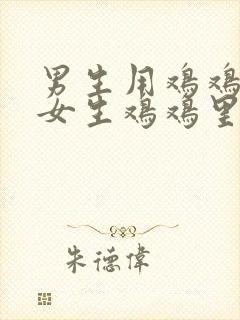 男生用鸡鸡
女生鸡鸡里
朱德偉